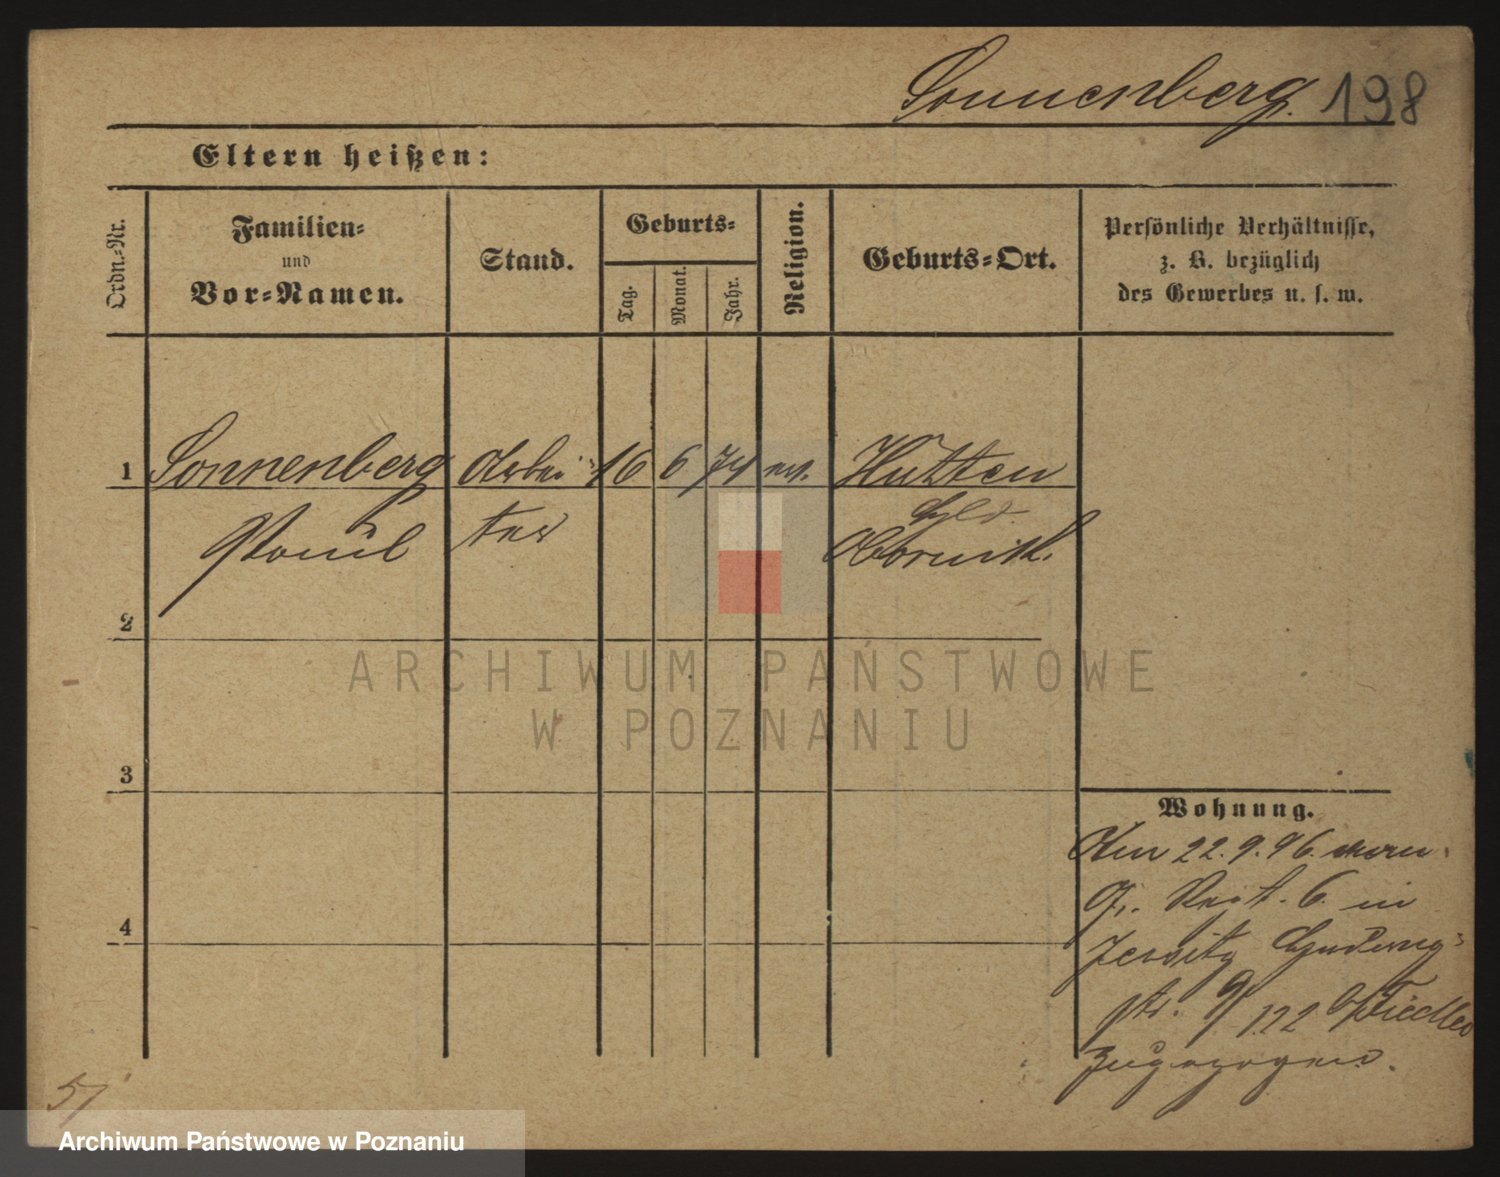 Sonnenberg. 198
Eltern heißen:
Ordn.-Nr.
Familien-
und
Vor-Namen.
Stand.
Geburts-
Tag.
Monat.
Jahr.
Religion.
Geburts-Ort.
Persönliche Verhältnisse,
z. B. bezüglich
des Gewerbes u. s. w.
1 Sonnenberg Arbei- 16 6 74 ev. Hutten
Paul ter
Obornik.
2
3
4
Wohnung.
22. 9. 96.
6. in
Jersitz
str. 9/ 122 Fiedler
zugezogen.
51
ARCHIWUM PAŃSTWOWE
W POZNANIU
Archiwum Państwowe w Poznaniu